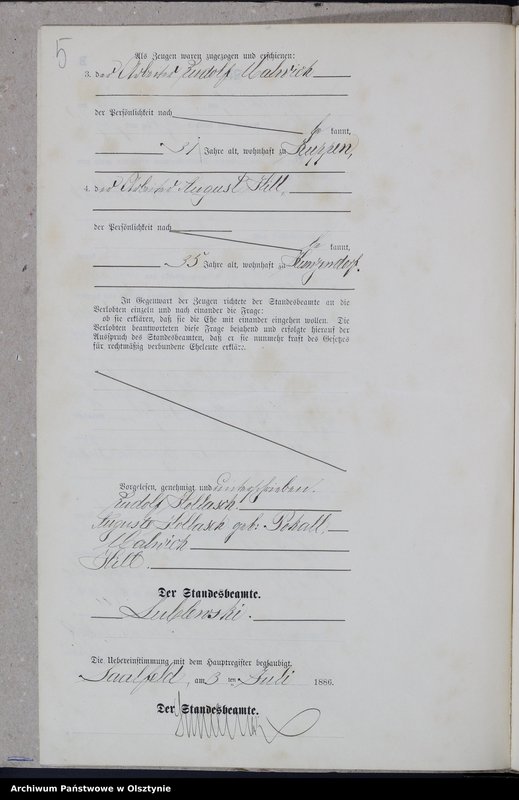 5
Als Zeugen waren zugezogen und erschienen:
3. der Arbeiter Rudolf Malwick
der Persönlichkeit nach
be kannt,
31 Jahre alt, wohnhaft zu Kuppen,
4. der Arbeiter August Still,
der Persönlichkeit nach
be kannt,
35 Jahre alt, wohnhaft zu Kunzendorf.
In Gegenwart der Zeugen richtete der Standesbeamte an die
Verlobten einzeln und nach einander die Frage:
ob sie erklären, daß sie die Ehe mit einander eingehen wollen. Die
Verlobten beantworteten diese Frage bejahend und erfolgte hierauf der
Ausspruch des Standesbeamten, daß er sie nunmehr kraft des Gesetzes
für rechtmäßig verbundene Eheleute erkläre.
Vorgelesen, genehmigt und unterschrieben.
Rudolf Sollasch.
Auguste Sollasch geb. Pohall.
Malwick
Still.
Der Standesbeamte.
Lublewski.
Die Uebereinstimmung mit dem Hauptregister beglaubigt.
Saalfeld, am 3 ten Juli 1886.
Der Standesbeamte.
Archiwum Państwowe w Olsztynie